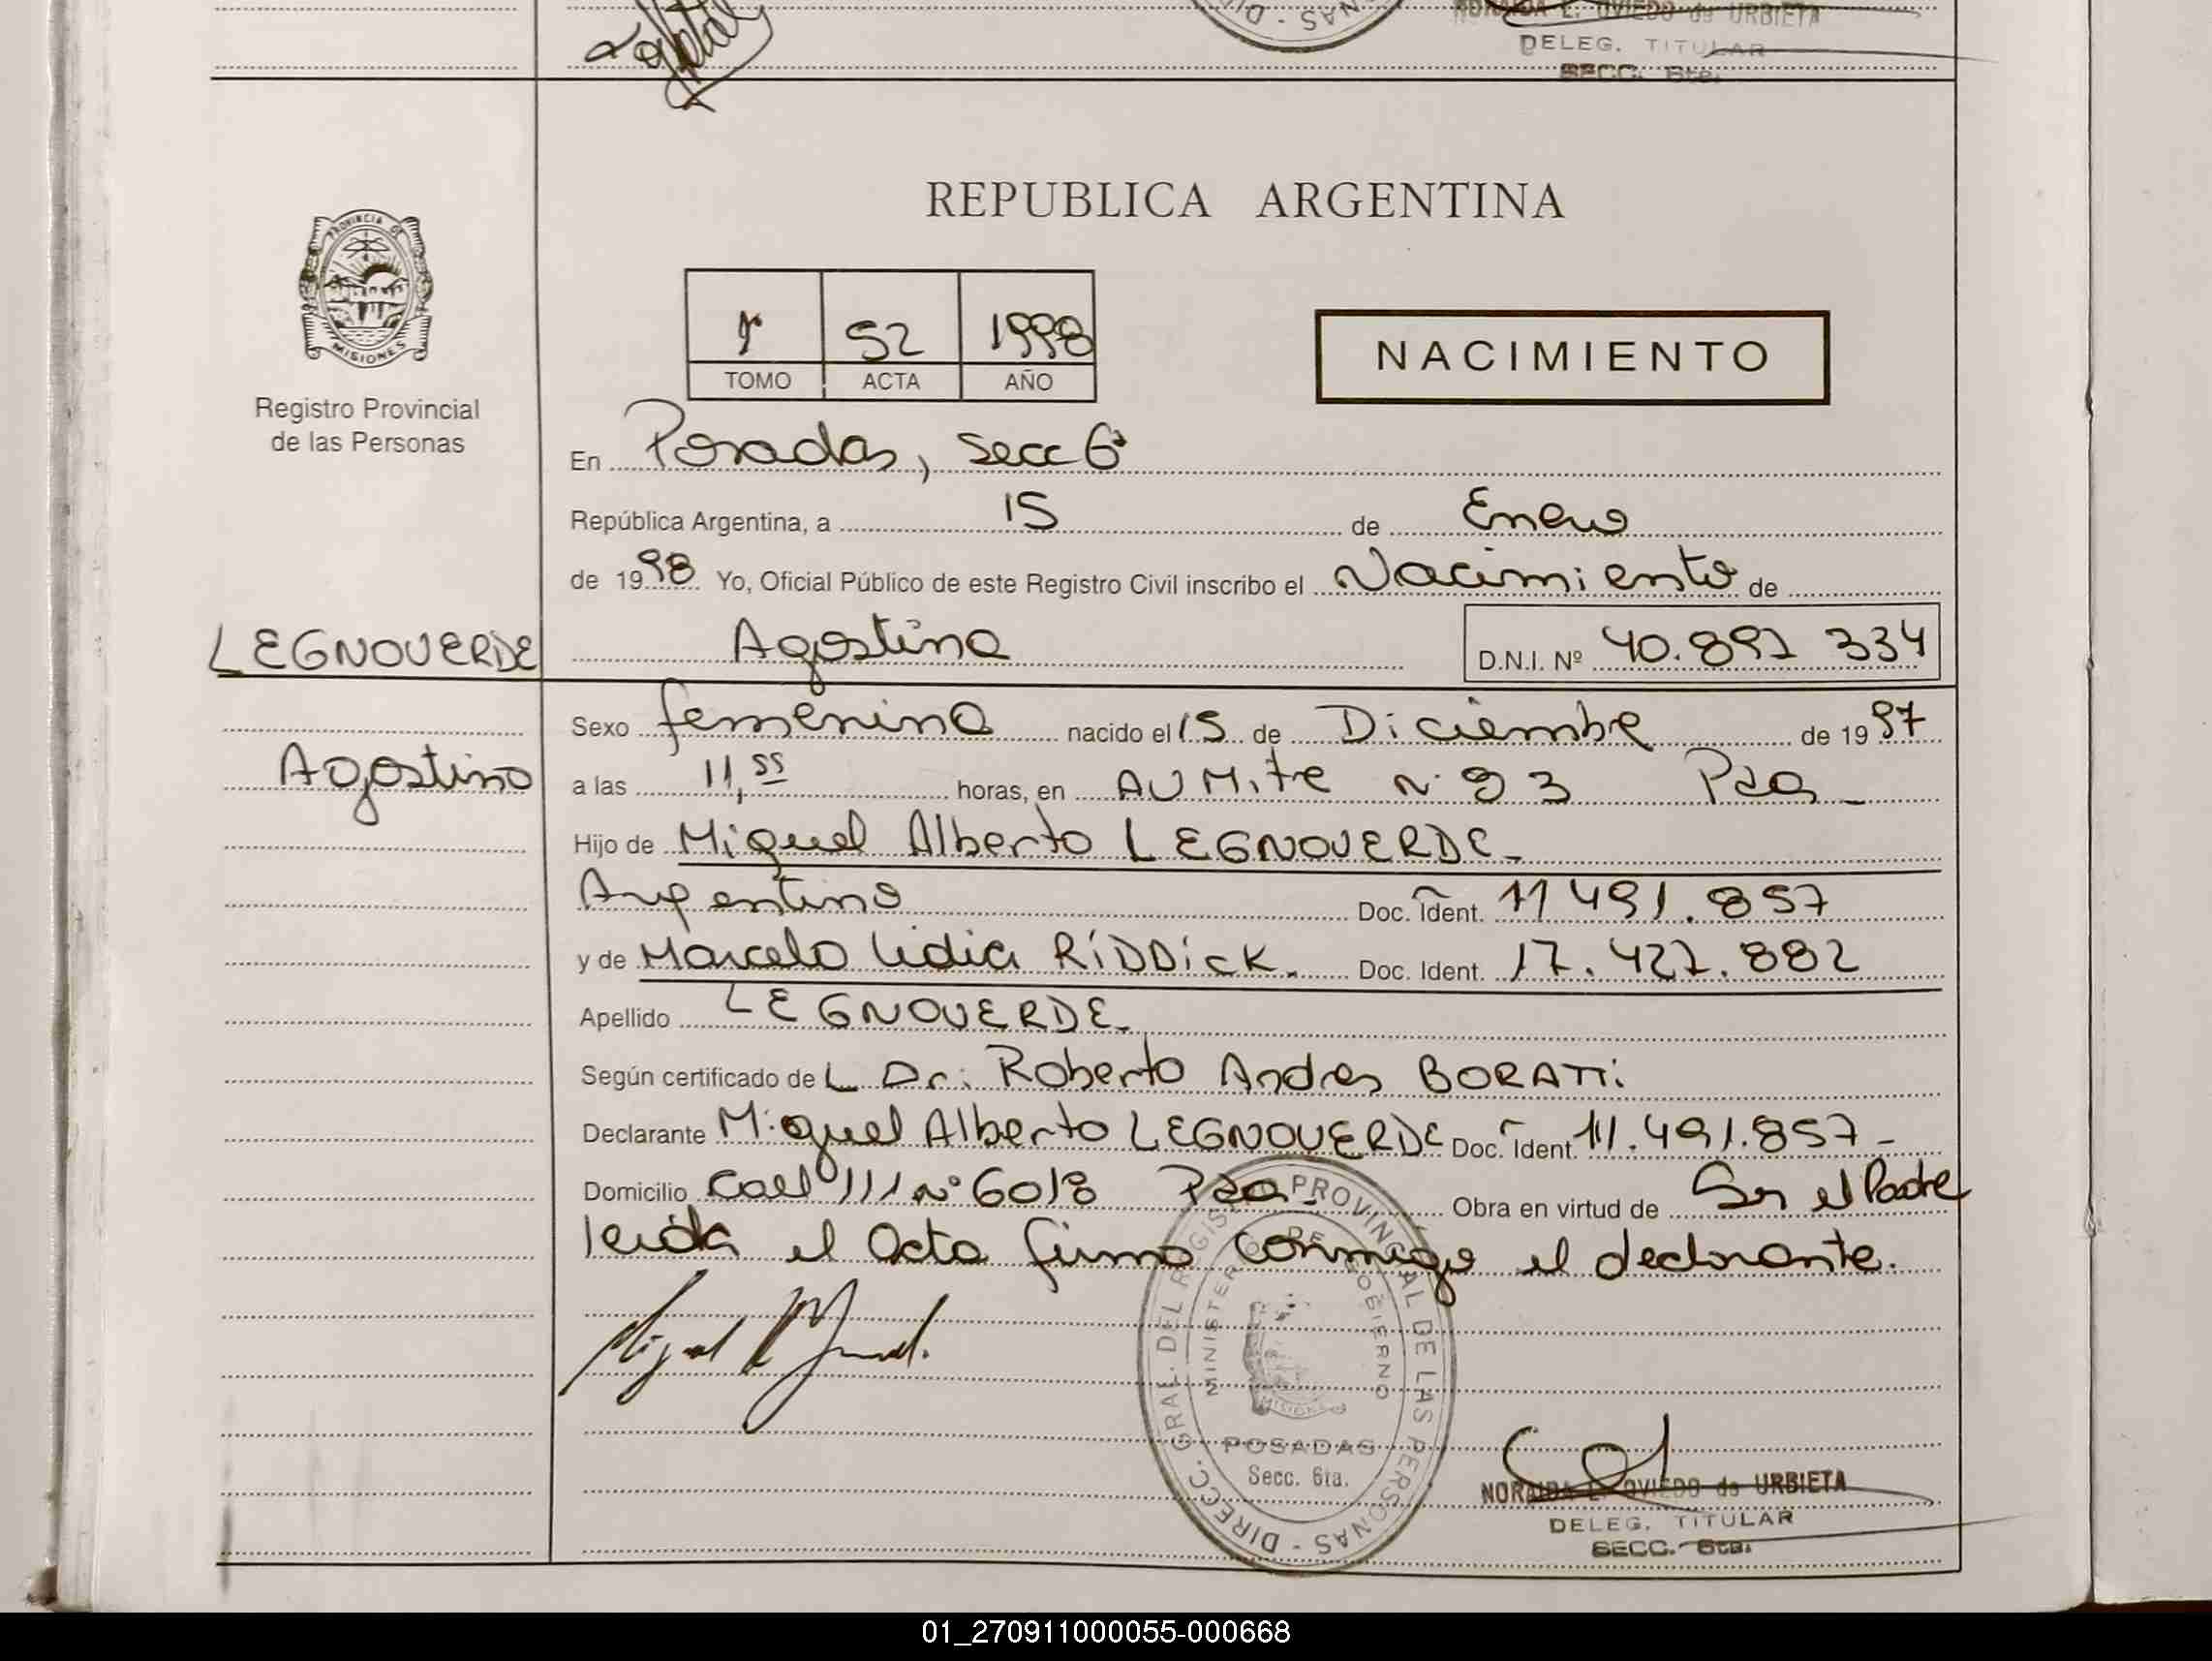 NORAIDA L. OVIEDO de URBIETA
DELEG. TITULAR
SECC. 6ta.
PROVINCIA DE
MISIONES
Registro Provincial
de las Personas
REPUBLICA ARGENTINA
1º 52 1998
TOMO ACTA AÑO
NACIMIENTO
En Posadas, Secc 6ª
República Argentina, a 15 de Enero
de 1998 Yo, Oficial Público de este Registro Civil inscribo el Nacimiento de
LEGNOVERDE Agostina D.N.I. Nº 40.897 334
Sexo femenino nacido el 15 de Diciembre de 1997
Agostina a las 11,55 horas, en AV Mitre Nº 93 Pdas
Hijo de Miguel Alberto LEGNOVERDE
Argentino Doc. Ident. 11 491.857
y de Marcela Lidia RIDDICK. Doc. Ident. 17.427.882
Apellido LEGNOVERDE
Según certificado del Dr. Roberto Andres BORATTI
Declarante Miguel Alberto LEGNOVERDE Doc. Ident. 11.491.857
Domicilio Call 111 Nº 6018 Pdas Obra en virtud de Ser el Padre
leida el Acta firma conmigo el declarante.
DIRECC. GRAL. DEL REGISTRO PROVINCIAL DE LAS PERSONAS
MINISTERIO DE GOBIERNO
MISIONES
POSADAS
Secc. 6ta.
NORAIDA L. OVIEDO de URBIETA
DELEG. TITULAR
SECC. 6ta.
01_270911000055-000668